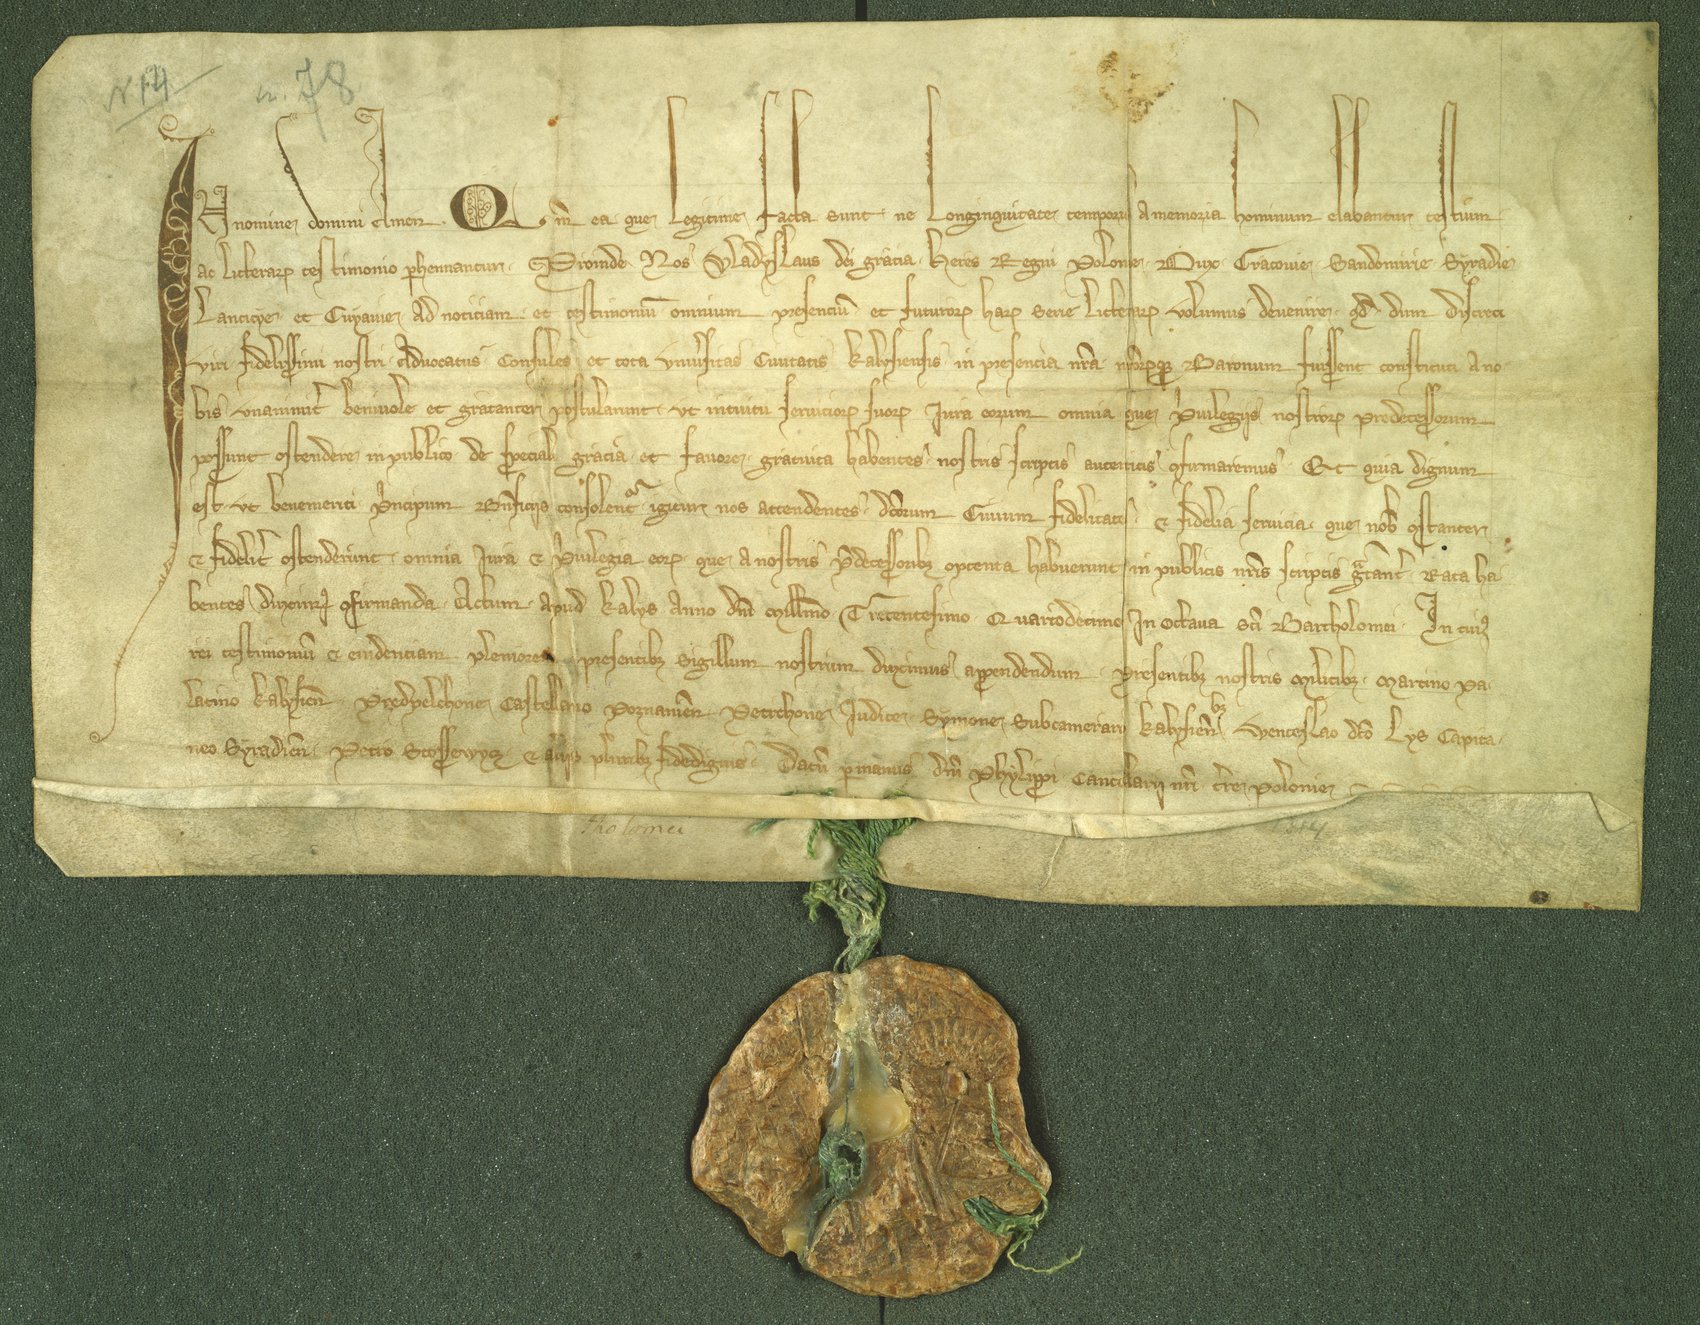 N 14 n. 78
In nomine domini Amen. Qm̄ ea que legitime facta sunt ne longinquitate temporū A memoria hominum elabantur testium
ac litterarꝝ testimonio ꝑhennantur. Proinde Nos Vladyslaus dei gracia heres Regni Polonie. Dux Cracouie Sandomirie Syradie
Lancicye et Cuyauie Ad noticiam et testimoniū omnium presenciū et futurorꝝ harꝝ serie litterarꝝ volumus deuenire. qd̄ dum discreti
viri fidelissimi nostri. Aduocatus Consules et tota vniu͛sitas Ciuitatis kalysiensis in presencia nr̄a nr̄orꝝqꝫ Baronum fuissent constituti A no
bis vnanimit͛ beniuole et gratanter postularunt. vt intuitu seruiciorꝝ suorꝝ Jura eorum omnia que p͛uilegijs nostrorꝝ predecessorum
possunt ostendere in publico de speciali gracia et fauore gratuita habentes nostris scriptis autenticis ꝯfirmaremus. Et quia dignum
est vt benemeriti p͛ncipum Bn̄ficijs consolent᷑ igitur nos attendentes dc̄orum Ciuium fidelitatē & fidelia seruicia que nob̄ ꝯstanter
& fidelit͛ ostenderunt. omnia Jura & p͛uilegia eorꝝ que A nostris p̄decessoribꝫ optenta habuerunt in publicis nr̄is scriptis gͣtant͛ Rata ha
bentes duximꝰ ꝯfirmanda. Actum Apud kalys Anno dn̄i Mill̄imo Trecentesimo Quartodecimo In Octaua sc̄i Bartholomei. In cuiꝰ
rei testimoniū & euidenciam pleniorem presentibꝫ Sigillum nostrum duximus appendendum. Presentibꝫ nostris militibꝫ. Martino Pa
latino kalysien̄. Predpelchone Castellano Poznanien̄. Petrchone Judice. Symone Subcamerario kalysien̄bꝫ Wenceslao dc̄o Lys Capita
neo Syradien̄. Petro & alijs pluribꝫ fidedignis. Datū ꝑ manus dn̄i Phylippi Cancelarij nr̄i tr̄e Polonie
tholomei
1314